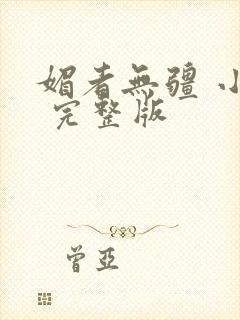 媚者無疆 小
完整版
曾亞